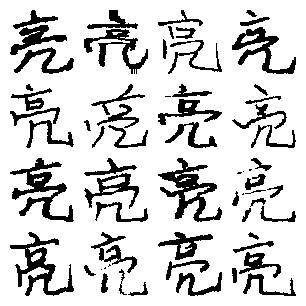 亮亮亮亮
亮亮亮亮
亮亮亮亮
亮亮亮亮